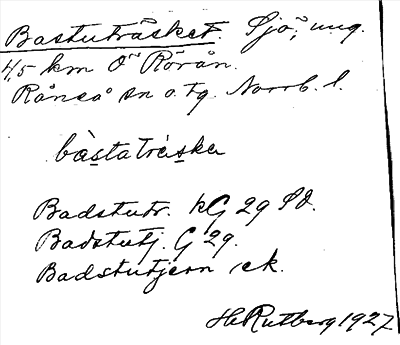 Bastuträsket. Sjö, ung.
4,5 km Ö Rörån.
Råneå sn o. tg. Norrb. l.
bàstatràska
Badstutr. kG 29 SO.
Badstutj. G 29.
Badstutjern ek.
H Rutberg 1927